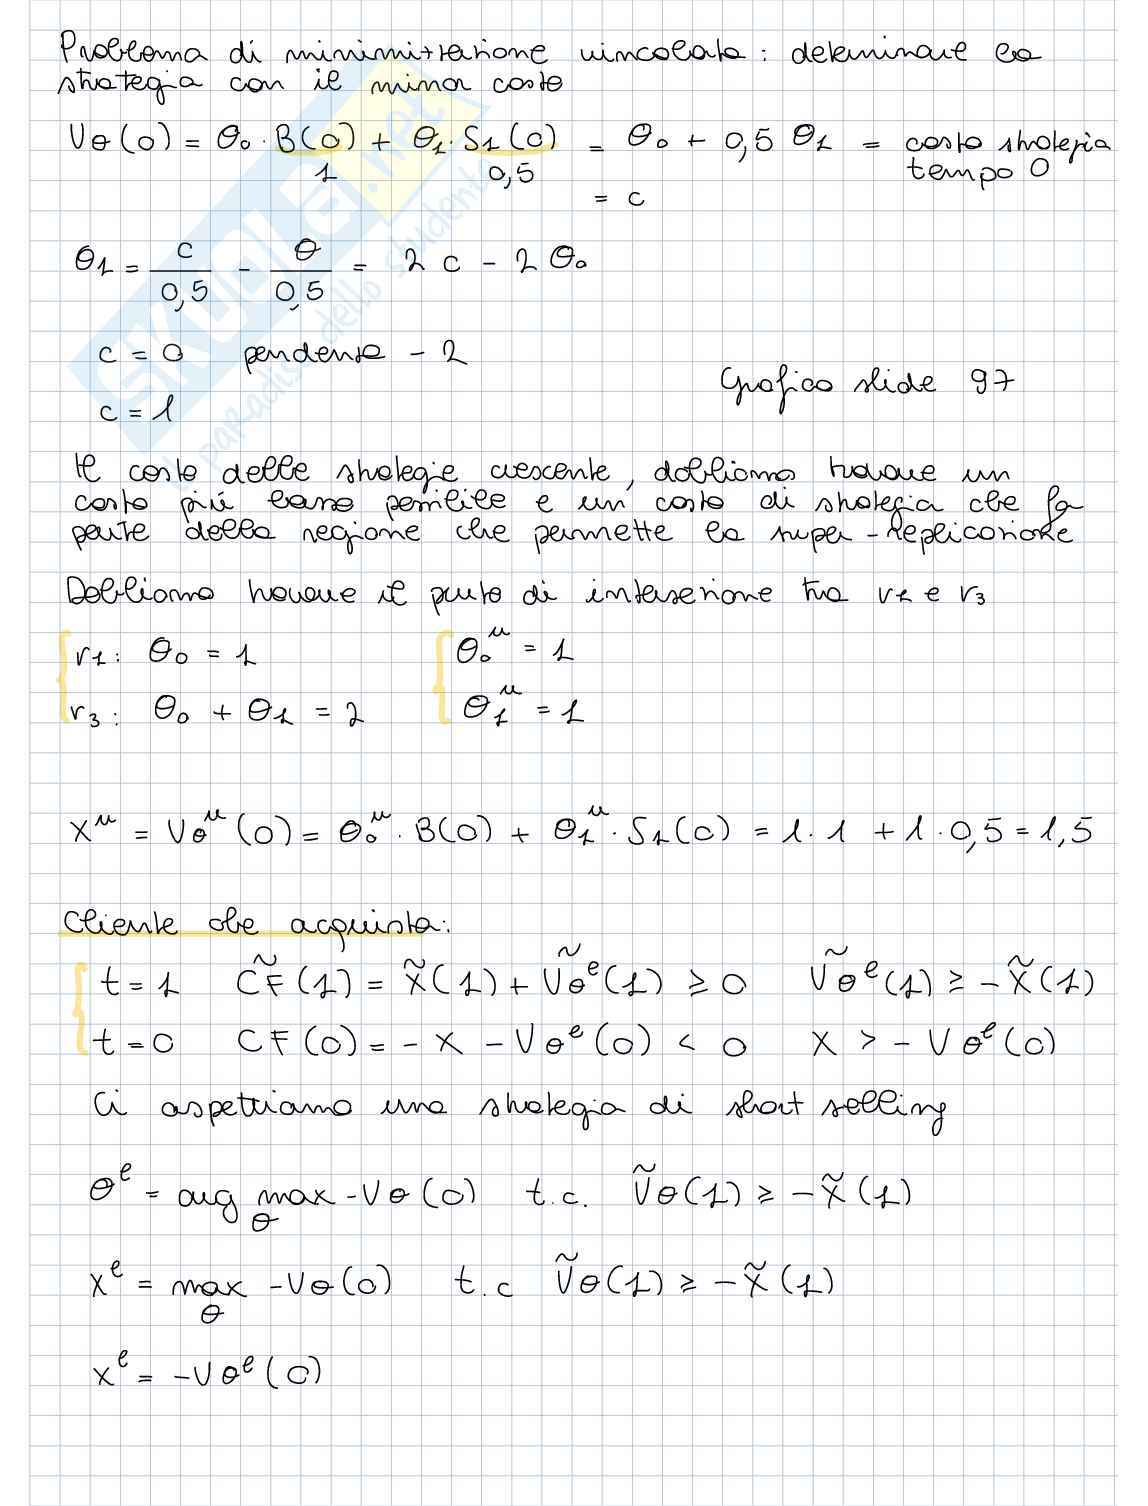 Problema di minimizzazione vincolata: determinare la
strategia con il minor costo
Vθ(0) = θ₀ · B(0) + θ₁ · S₁(0) = θ₀ + 0,5 θ₁ = costo strategia
1 0,5 tempo 0
= c
θ₁ = c/0,5 - θ/0,5 = 2 c - 2 θ₀
c = 0 pendense - 2
Grafico slide 97
c = 1
Il costo delle strategie crescente, dobbiamo trovare un
costo più basso possibile e un costo di strategia che fa
parte della regione che permette la super-replicazione
Dobbiamo trovare il punto di intersezione tra r₁ e r₃
r₁: θ₀ = 1 θ₀ᵘ = 1
r₃: θ₀ + θ₁ = 2 θ₁ᵘ = 1
xᵘ = Vθᵘ(0) = θ₀ᵘ · B(0) + θ₁ᵘ · S₁(0) = 1 · 1 + 1 · 0,5 = 1,5
Cliente che acquista:
t = 1 C̃F(1) = X̃(1) + Ṽθᵉ(1) ≥ 0 Ṽθᵉ(1) ≥ - X̃(1)
t = 0 CF(0) = - x - Vθᵉ(0) < 0 x > - Vθᵉ(0)
Ci aspettiamo una strategia di short selling
θᵉ = arg max - Vθ(0) t.c. Ṽθ(1) ≥ - X̃(1)
θ
xᵉ = max - Vθ(0) t.c Ṽθ(1) ≥ - X̃(1)
θ
xᵉ = - Vθᵉ(0)
SKUOLA.net
il paradiso dello studente